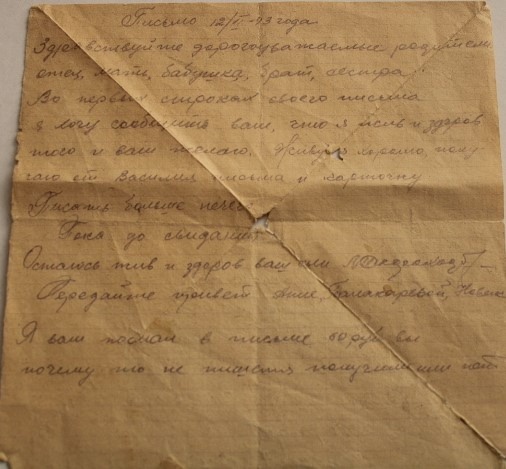 Письмо 12/II-43 года
Здравствуйте дорогоуважаемые родители
отец, мать, бабушка, брат, сестра!
Во первых строках своего письма
я могу сообщить вам, что я жив и здоров
того и вам желаю. Живу прямо, полу
чаю от Василия письма и карточку
Писать больше нечего
Пока до свидания
Остаюсь жив и здоров ваш сын
Передайте привет
Я вам послал в письме 50 руб вы
почему то не пишете получили или нет